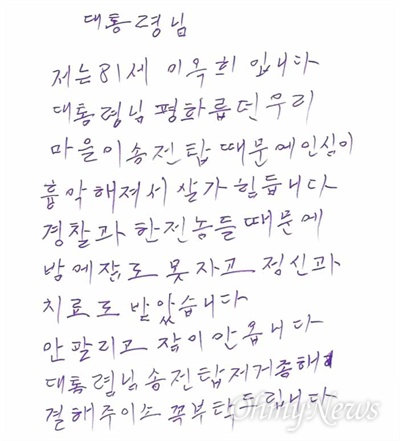 대통령님
저는 81세 이옥희 입니다
대통령님 평화롭던 우리
마을이 송전탑 때문에 인심이
흉악해져서 살가 힘듭니다
경찰과 한전놈들 때문에
밤에 잠도 못자고 정신과
치료도 받았습니다
안팔리고 잠이 안옵니다
대통령님 송전탑저거종해
결해주이소 꼭부탁드립니다
OhmyNews